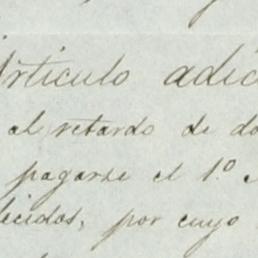 Artículo adic
al retardo de do
pagarse el 1.º
lecidos, por cuyo